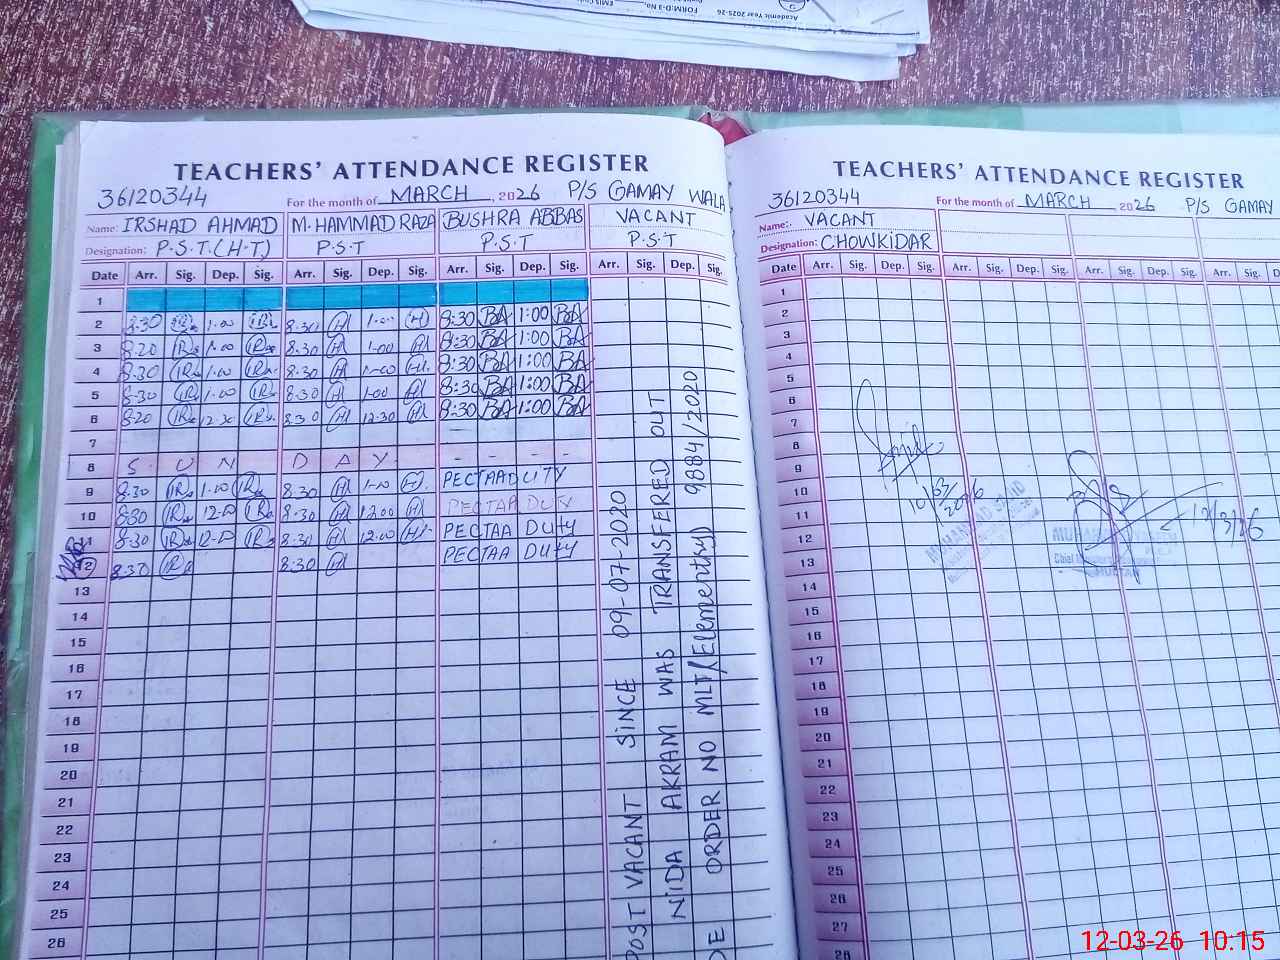 Academic Year 2025-26
FORM-D-3 No.
EMIS Code
TEACHERS' ATTENDANCE REGISTER
36120344 For the month of MARCH, 2026 P/S GAMAY WALA
Name: IRSHAD AHMAD M. HAMMAD RAZA BUSHRA ABBAS VACANT
Designation: P.S.T.(H.T) P.S.T P.S.T P.S.T
Date Arr. Sig. Dep. Sig. Arr. Sig. Dep. Sig. Arr. Sig. Dep. Sig. Arr. Sig. Dep. Sig.
1
2 8:30 1:00 8:30 H 1:00 H 8:30 BA 1:00 BA
3 8:20 IR 1:00 IR 8:30 H 1:00 H 8:30 BA 1:00 BA
4 8:30 IR 1:00 IR 8:30 H 1:00 H 8:30 BA 1:00 BA
5 8:30 IR 1:00 IR 8:30 H 1:00 H 8:30 BA 1:00 BA
6 8:20 IR 12:30 IR 8:30 H 12:30 H 8:30 BA 1:00 BA
7
8 S U N D A Y - - - -
9 8:30 IR 1:00 IR 8:30 H 1:00 H PECTAA DUTY
10 8:30 IR 12:00 IR 8:30 H 12:00 H PECTAA DUTY
11 8:30 IR 12:00 IR 8:30 H 12:00 H PECTAA DUTY
12 8:30 IR 8:30 H PECTAA DUTY
13
14
15
16
17
18
19
20
21
22
23
24
25
26
POST VACANT SINCE 09-07-2020
NIDA AKRAM WAS TRANSFERED OUT
DE ORDER NO MLT/Elementry) 9884/2020
TEACHERS' ATTENDANCE REGISTER
36120344 For the month of MARCH 2026 P/S GAMAY
Name: VACANT
Designation: CHOWKIDAR
Date Arr. Sig. Dep. Sig. Arr. Sig. Dep. Sig. Arr. Sig. Dep. Sig. Arr. Sig. D
1
2
3
4
5
6
7
8
9
10
11
12
13
14
15
16
17
18
19
20
21
22
23
24
25
26
27
28
10/03/2026
MUHAMMAD SAJID
12/3/26
12-03-26 10:15